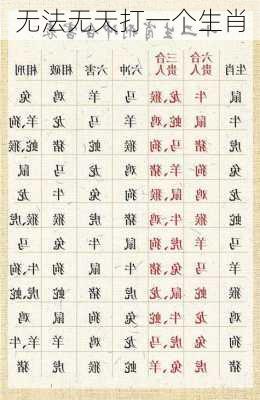 无法无天打一一个生肖
生肖 六合贵人 三合贵人 六冲 六害 相破 相刑
鼠 牛 龙,猴 马 羊 鸡 兔
牛 鼠 蛇,鸡 羊 马 龙 羊,狗
虎 猪 马,狗 猴 蛇 猪 蛇,猴
兔 狗 羊,猪 鸡 龙 马 鼠
龙 鸡 鼠,猴 狗 兔 牛 龙
蛇 猴 牛,鸡 猪 虎 猴 猴,虎
马 羊 虎,狗 鼠 牛 兔 马
羊 马 兔,猪 牛 鼠 狗 牛,狗
猴 蛇 鼠,龙 虎 猪 蛇 虎,蛇
鸡 龙 牛,蛇 兔 狗 鼠 鸡
狗 兔 虎,马 龙 鸡 羊 羊,牛
猪 虎 兔,羊 蛇 猴 虎 猪